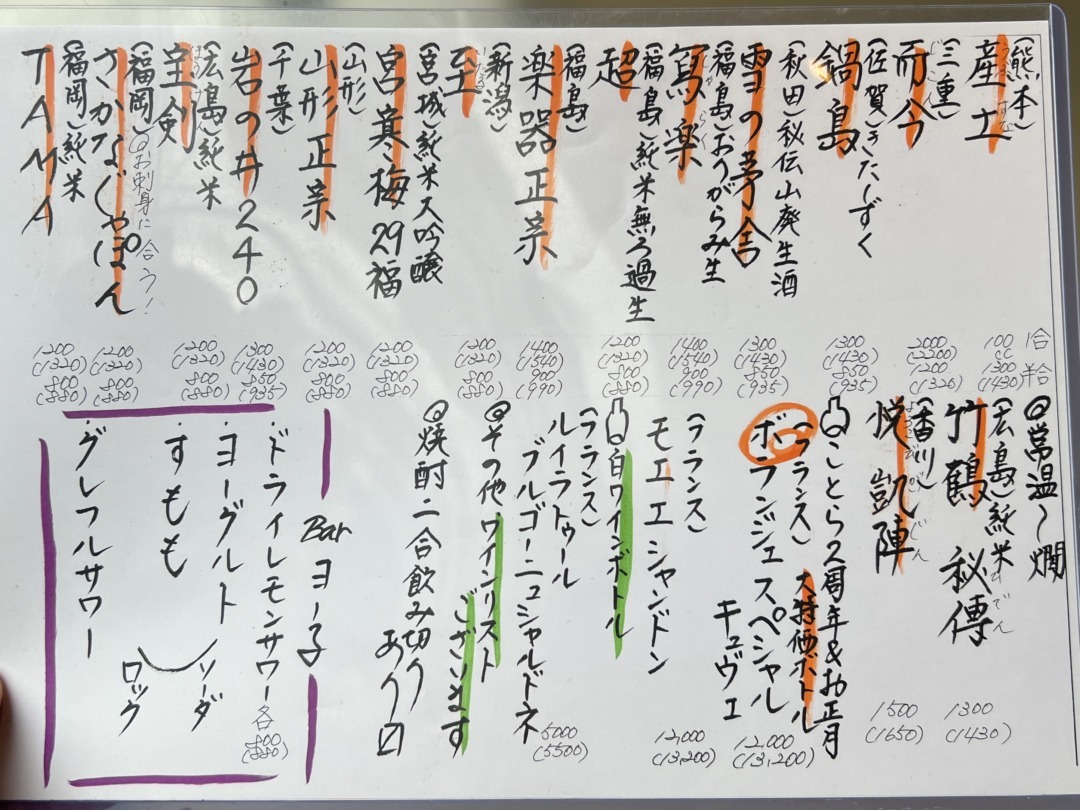 (熊本)
産土
うぶすな
(三重)
而今
じこん
(佐賀)きたしずく
鍋島
(秋田)秘伝山廃生酒
雪の茅舎
(福島)おりがらみ生
寫楽
しゃらく
(福島)純米無ろ過生
超
(福島)
楽器正宗
(新潟)
至
いたる
宮城)純米大吟醸
宮寒梅29福
(山形)
山形正宗
(千葉)
岩の井240
(広島)純米
宝剣
(福岡)◎お刺身に合う!
さかなじゃぽん
福岡)純米
TAMA
1合
半合
100cc
1300
(1430)
2000
(2200)
1200
(1320)
1300
(1430)
850
(935)
1300
(1430)
850
(935)
1400
(1540)
900
(990)
1200
(1320)
800
(880)
1400
(1540)
900
(990)
1200
(1320)
800
(880)
1200
(1320)
800
(880)
1200
(1320)
800
(880)
1300
(1430)
850
(935)
1200
(1320)
800
(880)
1200
(1320)
800
(880)
1200
(1320)
800
(880)
◎常温〜燗
(広島)純米
竹鶴 秘傳
ひでん
1300
(1430)
(香川)
悦凱陣
よろこびがいじん
1500
(1650)
ことら2周年&お正月
(フランス) 大特価ボトル
ボランジェスペシャル
キュヴェ
12,000
(13,200)
(フランス)
モエエシャンドン
12,000
(13,200)
白ワインボトル
(フランス)
ルイラトゥール
ブルゴーニュシャルドネ
5000
(5500)
◎その他ワインリスト
ございます
◎焼酎二合飲み切り
あり〼
Bar ヨー子
・ドライレモンサワー各
800
(880)
・ヨーグルト
・すもも
ソーダ
ロック
・グレフルサワー